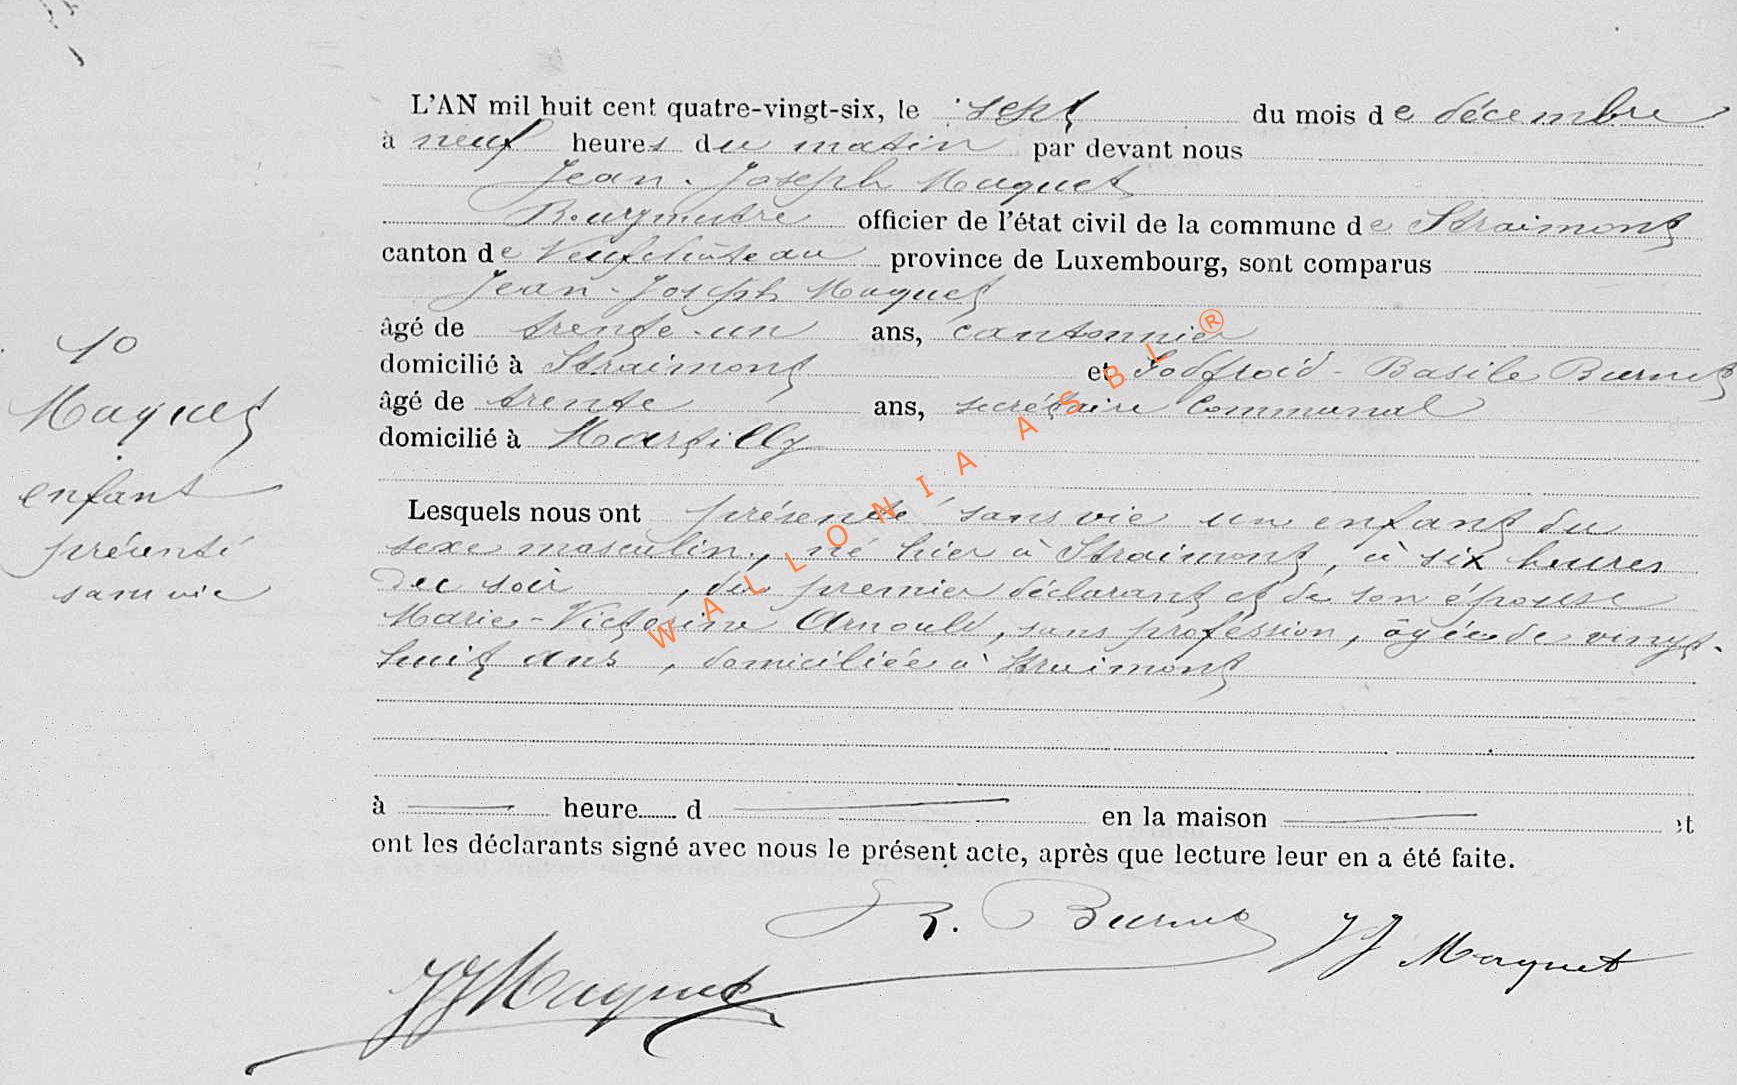 L'AN mil huit cent quatre-vingt-six, le sept du mois de décembre
à neuf heures du matin par devant nous
Jean-Joseph Maquet
Bourgmestre officier de l'état civil de la commune de Straimont
canton de Neufchâteau province de Luxembourg, sont comparus
Jean-Joseph Maquet
âgé de trente-un ans, cantonnier
domicilié à Straimont et Godfroid-Basile Burnet
âgé de trente ans, secrétaire Communal
domicilié à Martilly
10
Maquet
enfant
présenté
sans vie
Lesquels nous ont présenté sans vie un enfant du
sexe masculin, né hier à Straimont, à six heures
du soir, du premier déclarant et de son épouse
Marie-Victorine Arnould, sans profession, âgée de vingt-
huit ans, domiciliée à Straimont
à heure d en la maison et
ont les déclarants signé avec nous le présent acte, après que lecture leur en a été faite.
B. Burnet
JJ Maquet
JJ Maquet
WALLONIA ASBL ®